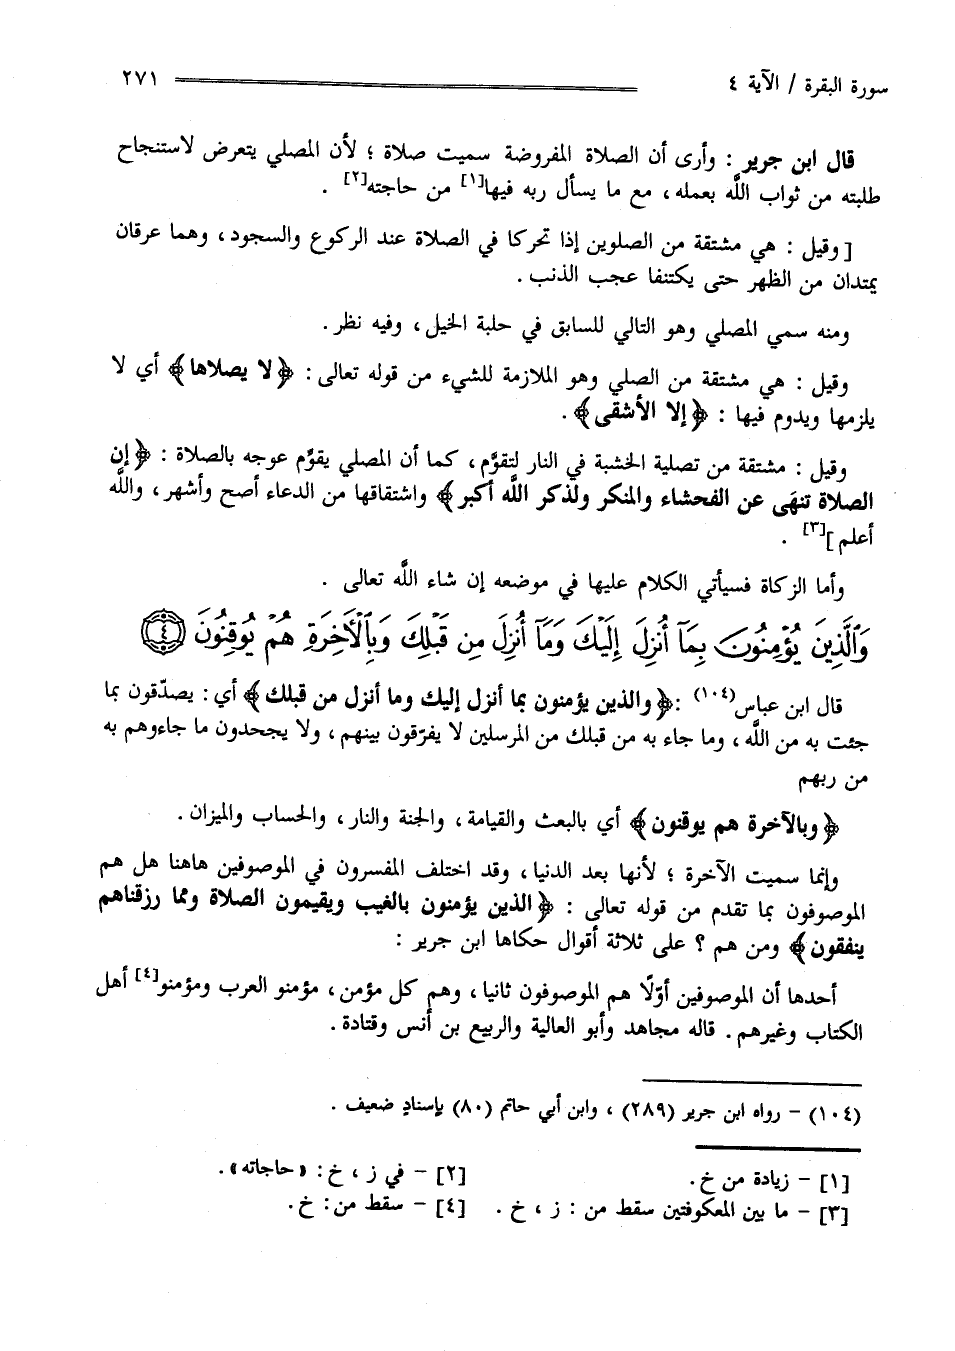 سورة البقرة / الآية ٤ ٢٧١
قال ابن جرير : وأرى أن الصلاة المفروضة سميت صلاة ؛ لأن المصلي يتعرض لاستنجاح
طلبته من ثواب اللَّه بعمله ، مع ما يسأل ربه فيها[١] من حاجته[٢] .
[ وقيل : هي مشتقة من الصلوين إذا تحركا في الصلاة عند الركوع والسجود ، وهما عرقان
يمتدان من الظهر حتى يكتنفا عجب الذنب .
ومنه سمي المصلي وهو التالي للسابق في حلبة الخيل ، وفيه نظر .
وقيل : هي مشتقة من الصلي وهو الملازمة للشيء من قوله تعالى : ﴿لا يصلاها﴾ أي لا
يلزمها ويدوم فيها : ﴿إلا الأشقى﴾ .
وقيل : مشتقة من تصلية الخشبة في النار لتقوَّم ، كما أن المصلي يقوَّم عوجه بالصلاة : ﴿إن
الصلاة تنهَى عن الفحشاء والمنكر ولذكر اللَّه أكبر﴾ واشتقاقها من الدعاء أصح وأشهر ، واللَّه
أعلم ][٣] .
وأما الزكاة فسيأتي الكلام عليها في موضعه إن شاء اللَّه تعالى .
وَٱلَّذِينَ يُؤْمِنُونَ بِمَآ أُنزِلَ إِلَيْكَ وَمَآ أُنزِلَ مِن قَبْلِكَ وَبِٱلْأَخِرَةِ هُمْ يُوقِنُونَ ٤
قال ابن عباس(١٠٤) : ﴿والذين يؤمنون بما أنزل إليك وما أنزل من قبلك﴾ أي : يصدّقون بما
جئت به من اللَّه ، وما جاء به من قبلك من المرسلين لا يفرّقون بينهم ، ولا يجحدون ما جاءوهم به
من ربهم
﴿وبالآخرة هم يوقنون﴾ أي بالبعث والقيامة ، والجنة والنار ، والحساب والميزان .
وإنما سميت الآخرة ؛ لأنها بعد الدنيا ، وقد اختلف المفسرون في الموصوفين هاهنا هل هم
الموصوفون بما تقدم من قوله تعالى : ﴿الذين يؤمنون بالغيب ويقيمون الصلاة ومما رزقناهم
ينفقون﴾ ومن هم ؟ على ثلاثة أقوال حكاها ابن جرير :
أحدها أن الموصوفين أوّلًا هم الموصوفون ثانيا ، وهم كل مؤمن ، مؤمنو العرب ومؤمنو[٤] أهل
الكتاب وغيرهم . قاله مجاهد وأبو العالية والربيع بن أنس وقتادة .
(١٠٤) – رواه ابن جرير (٢٨٩) ، وابن أبي حاتم (٨٠) بإسنادٍ ضعيف .
[١] – زيادة من خ . [٢] – في ز ، خ : «حاجاته» .
[٣] – ما بين المعكوفتين سقط من : ز ، خ . [٤] – سقط من : خ .